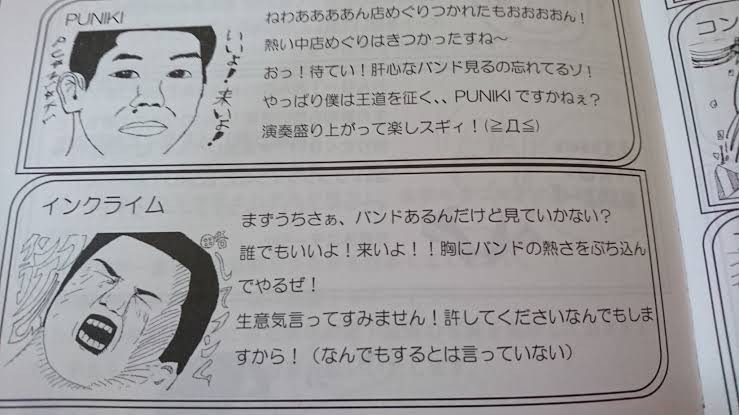 PUNIKI
いいよ！来いよ！
ねわああああん店めぐりつかれたもおおおおん！
熱い中店めぐりはきつかったすね～
おっ！待てい！肝心なバンド見るの忘れてるゾ！
やっぱり僕は王道を征く、、PUNIKIですかねぇ？
演奏盛り上がって楽しスギィ！(≧Д≦)
コン
インクライム
まずうちさぁ、バンドあるんだけど見ていかない？
誰でもいいよ！来いよ！！胸にバンドの熱さをぶち込ん
でやるぜ！
生意気言ってすみません！許してくださいなんでもしま
すから！（なんでもするとは言っていない）